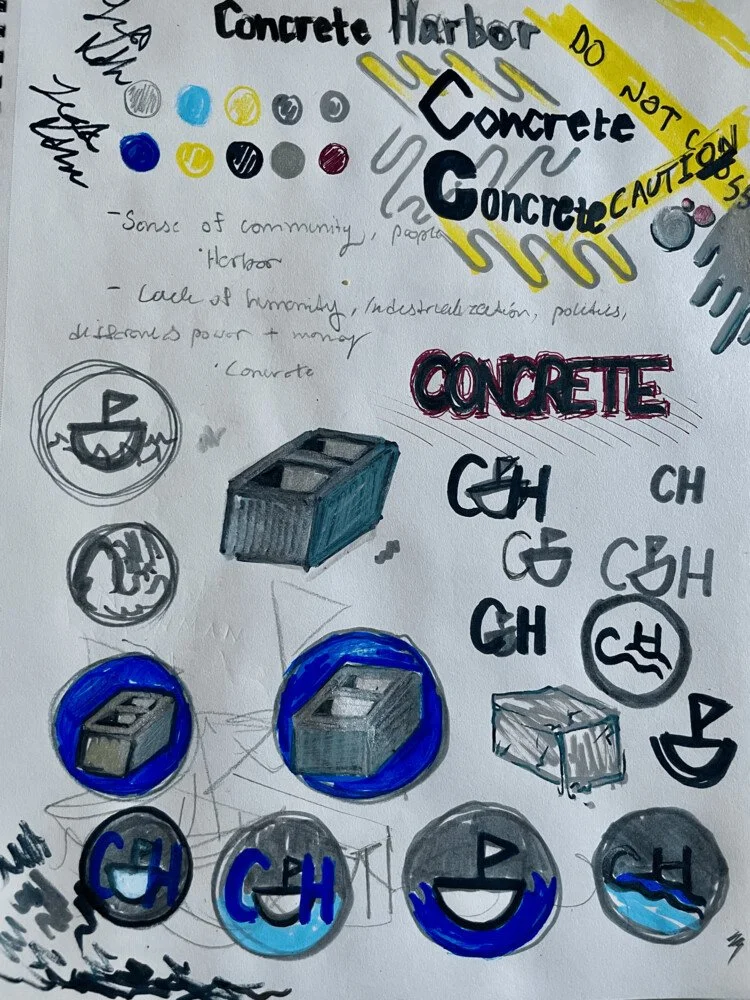 Concrete Harbor
DO NOT CROSS
Concrete
Concrete
CAUTION
- Sense of community, people
Harbor
- Lack of humanity, industrialization, politics,
differences power + money
Concrete
CONCRETE
CH
CH
C H
C H
CH
CH
CH
CH
CH